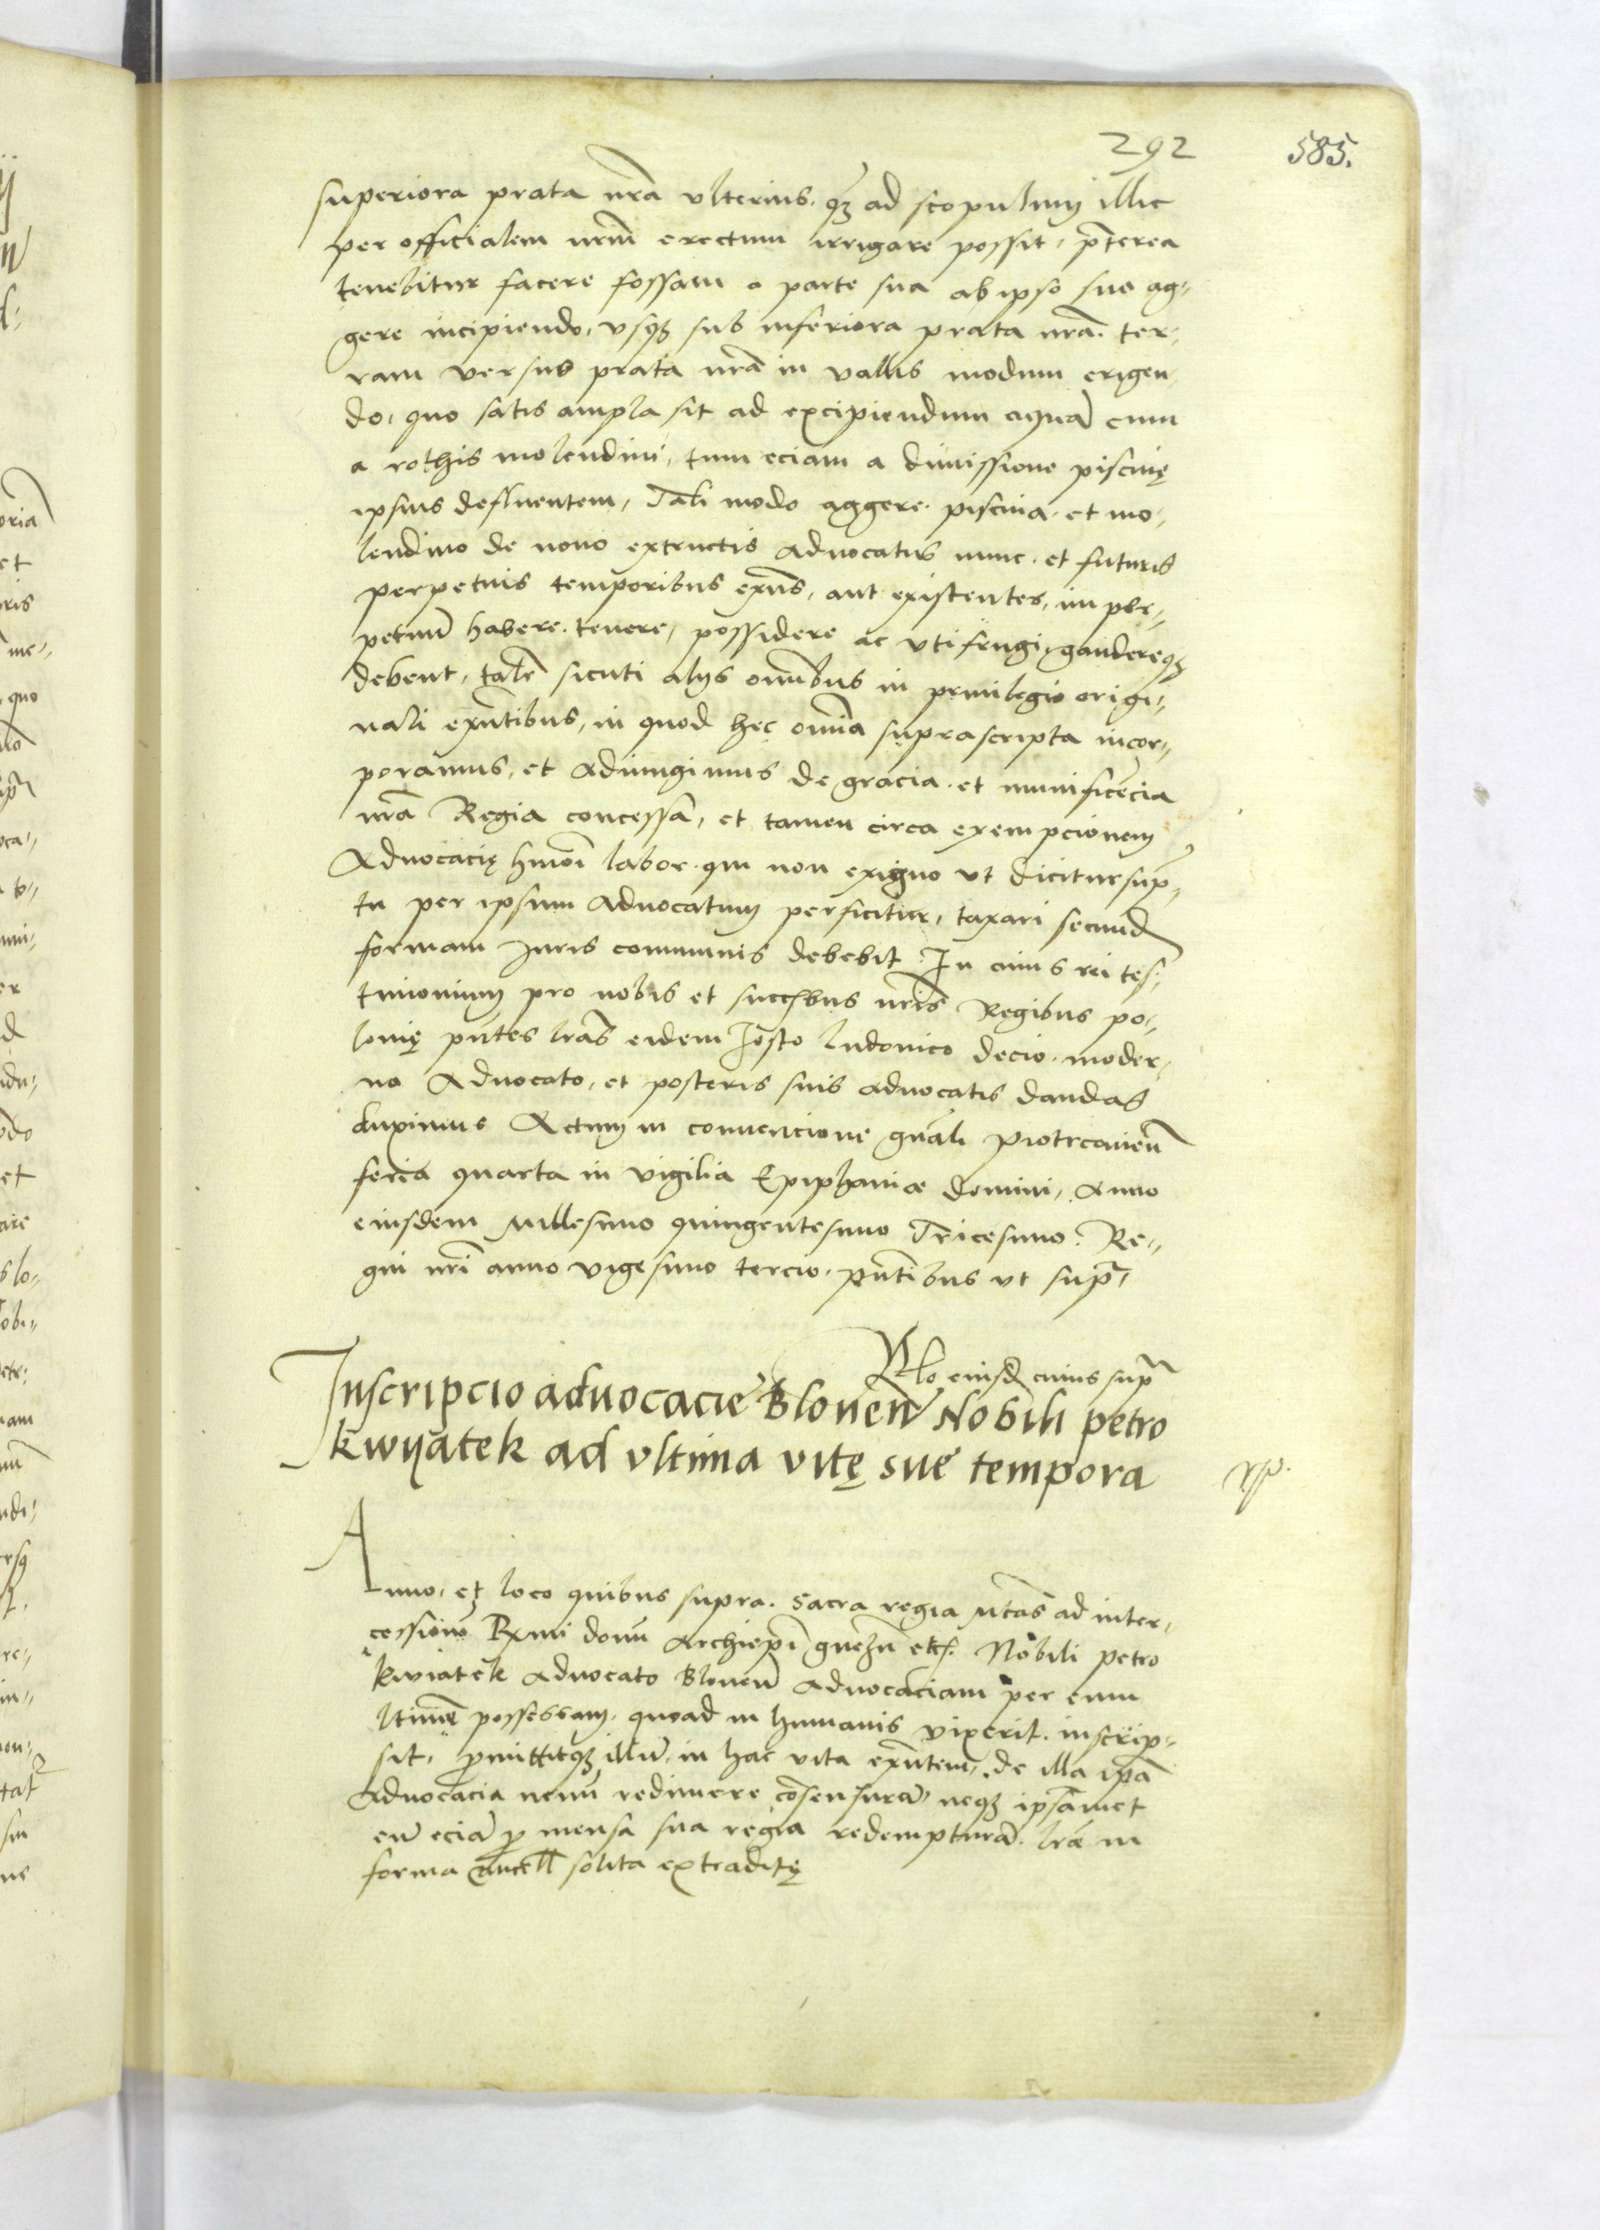 292
585.
superiora prata nrã vlterius, q̃3 ad scopulum illic
per officialem nrm̃ erectum irrigare possit, p̃terea
tenebitur facere fossam a parte sua ab ipso suo ag-
gere incipiendo, vsq3 sub inferiora prata nrã. ter-
ram versus prata nrã in vallis modum erigen-
do, quo satis ampla sit ad excipiendum aquã cum
a rothis molendini, tum eciam a dimissione piscinę
ipsius defluentem, Tali modo aggere, piscina, et mo-
lendino de novo extructis advocatus nunc, et futuris
perpetuis temporibus exñs, aut existentes, in per-
petuũ habere, tenere, possidere ac vti frugi, gaudereq3
debent, talr̃ sicuti alys om̃ibus in privilegio origi-
nali exñtibus, in quod hęc om̃ia suprascripta incor-
poramus, et adiungimus de gracia, et munificẽcia
nrã Regia concessa, et tamen circa exempcionem
Advocacię hm̃oi labor, qui non exiguo vt dicitur sump-
tu per ipsum Advocatum perficitur, taxari secund
formam Juris communis debebit. In cuius rei tes-
timonium pro nobis et succ̃bus nrĩs Regibus po-
lonię pñtes lrãs eidem Josto ludovico decio, moder-
no Advocato, et posteris suis advocatis dandas
duximus Actum in convencione gñali piotrcovieñ
feria quarta in vigilia Epiphaniæ domini, Anno
eiusdem Millesimo quingentesimo Tricesimo. Re-
gni nrĩ anno vigesimo tercio, pñtibus vt sup̃,
Rlo eiusd cuius sup̃
Inscripcio advocacie Bloneñ Nobili petro
kwyatek ad vltima vitę sue tempora
Anno, et loco quibus supra. Sacra regia Mtãs ad inter-
cessionẽ Rxmi domi Archiepĩ gneznẽ etc. Nobili petro
kwiatek Advocato Bloneñ Advocaciam per eum
ltimẽ possessam, quoad in humanis vixerit, inscrip-
sit, p̃mittitq3 illũ, in hac vita exñtem, de illa ip̃a
Advocacia nemĩ redimere cõsensurã, neq3 ipsãmet
eã eciã p̃ mensa sua regia redempturã. lrẽ in
forma cancell solita extraditę